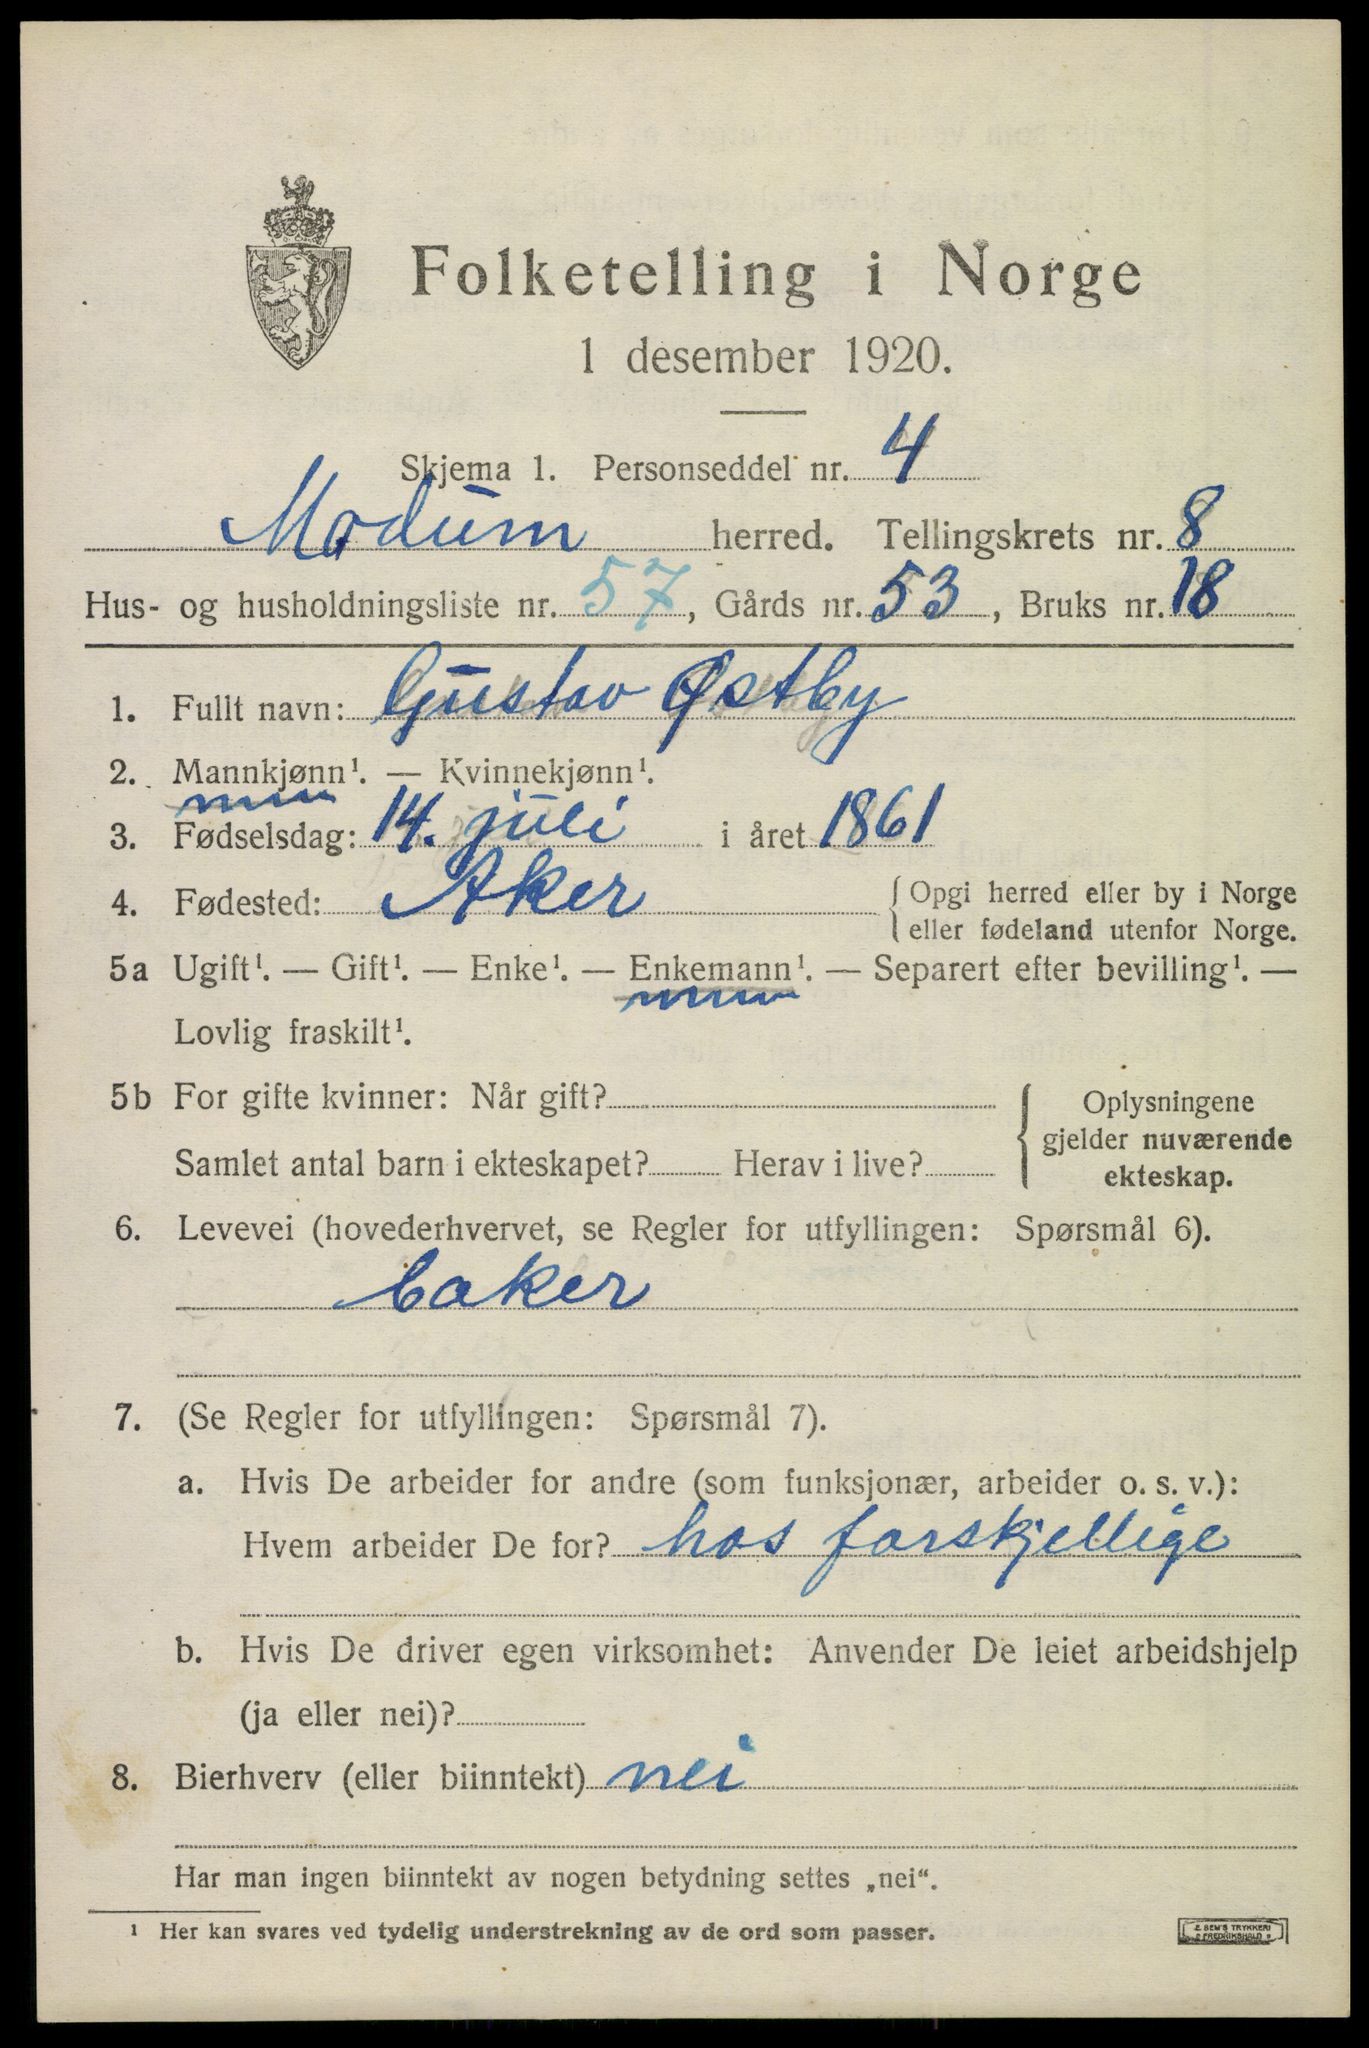 Folketelling i Norge
1 desember 1920.
Skjema 1. Personseddel nr. 4
Modum herred. Tellingskrets nr. 8
Hus- og husholdningsliste nr. 57, Gårds nr. 53, Bruks nr. 18
1. Fullt navn: Gustav Østby
2. Mannkjønn¹. — Kvinnekjønn¹.
3. Fødselsdag: 14. juli i året 1861
4. Fødested: Aker { Opgi herred eller by i Norge
eller fødeland utenfor Norge.
5a Ugift¹. — Gift¹. — Enke¹. — Enkemann¹. — Separert efter bevilling¹. —
Lovlig fraskilt¹.
5b For gifte kvinner: Når gift?
Samlet antal barn i ekteskapet? Herav i live?
{ Oplysningene
gjelder nuværende
ekteskap.
6. Levevei (hovederhvervet, se Regler for utfyllingen: Spørsmål 6).
baker
7. (Se Regler for utfyllingen: Spørsmål 7).
a. Hvis De arbeider for andre (som funksjonær, arbeider o. s. v.):
Hvem arbeider De for? hos forskjellige
b. Hvis De driver egen virksomhet: Anvender De leiet arbeidshjelp
(ja eller nei)?
8. Bierhverv (eller biinntekt) nei
Har man ingen biinntekt av nogen betydning settes „nei“.
¹ Her kan svares ved tydelig understrekning av de ord som passer.
E. SEM'S TRYKKERI
FREDRIKSHALD